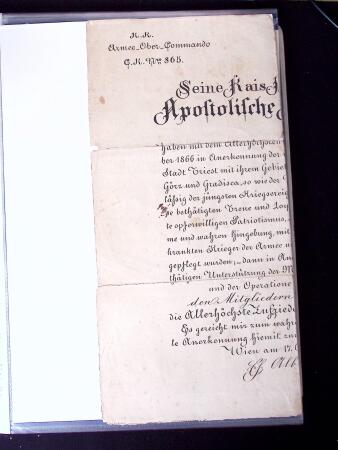 K. K.
Armee-Ober-Commando
C. K. Nro 865.
Seine Kais.
Apostolische
haben mit dem Allerhöchsten
ber 1866 in Anerkennung der
Stadt Triest mit ihrem Gebiet
Görz und Gradisca, so wie der
läßig der jüngsten Kriegserei
bethätigten Treue und Loy
te opferwilligen Patriotismus,
me und wahren Hingebung, mit
krankten Krieger der Armee u
gepflegt wurden, dann in An
thätigen Unterstützung der
und der Operatione
den Mitgliedern
die Allerhöchste Zufriede
Es gereicht mir zum wahr
te Anerkennung hiemit zu
Wien am 17.